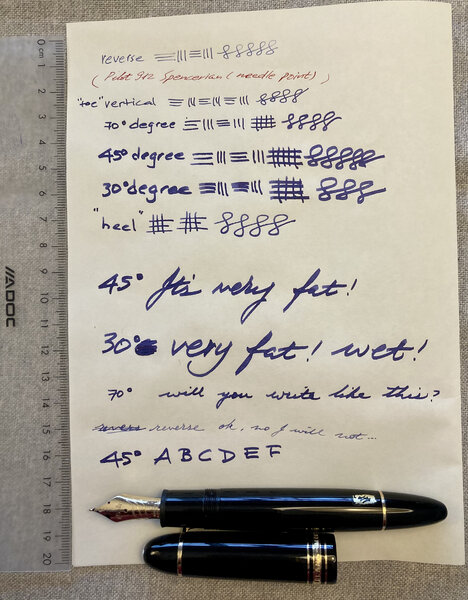 reverse
(Pilot 912 Spencerian (needle point))
"toe" vertical
70° degree
45° degree
30° degree
"heel"
45° It's very fat!
30° very fat! wet!
70° will you write like this?
reverse ok, no I will not...
45° A B C D E F
0 cm 1 2 3 4 5 6 7 8 9 10 11 12 13 14 15 16 17 18 19 20
ADOC